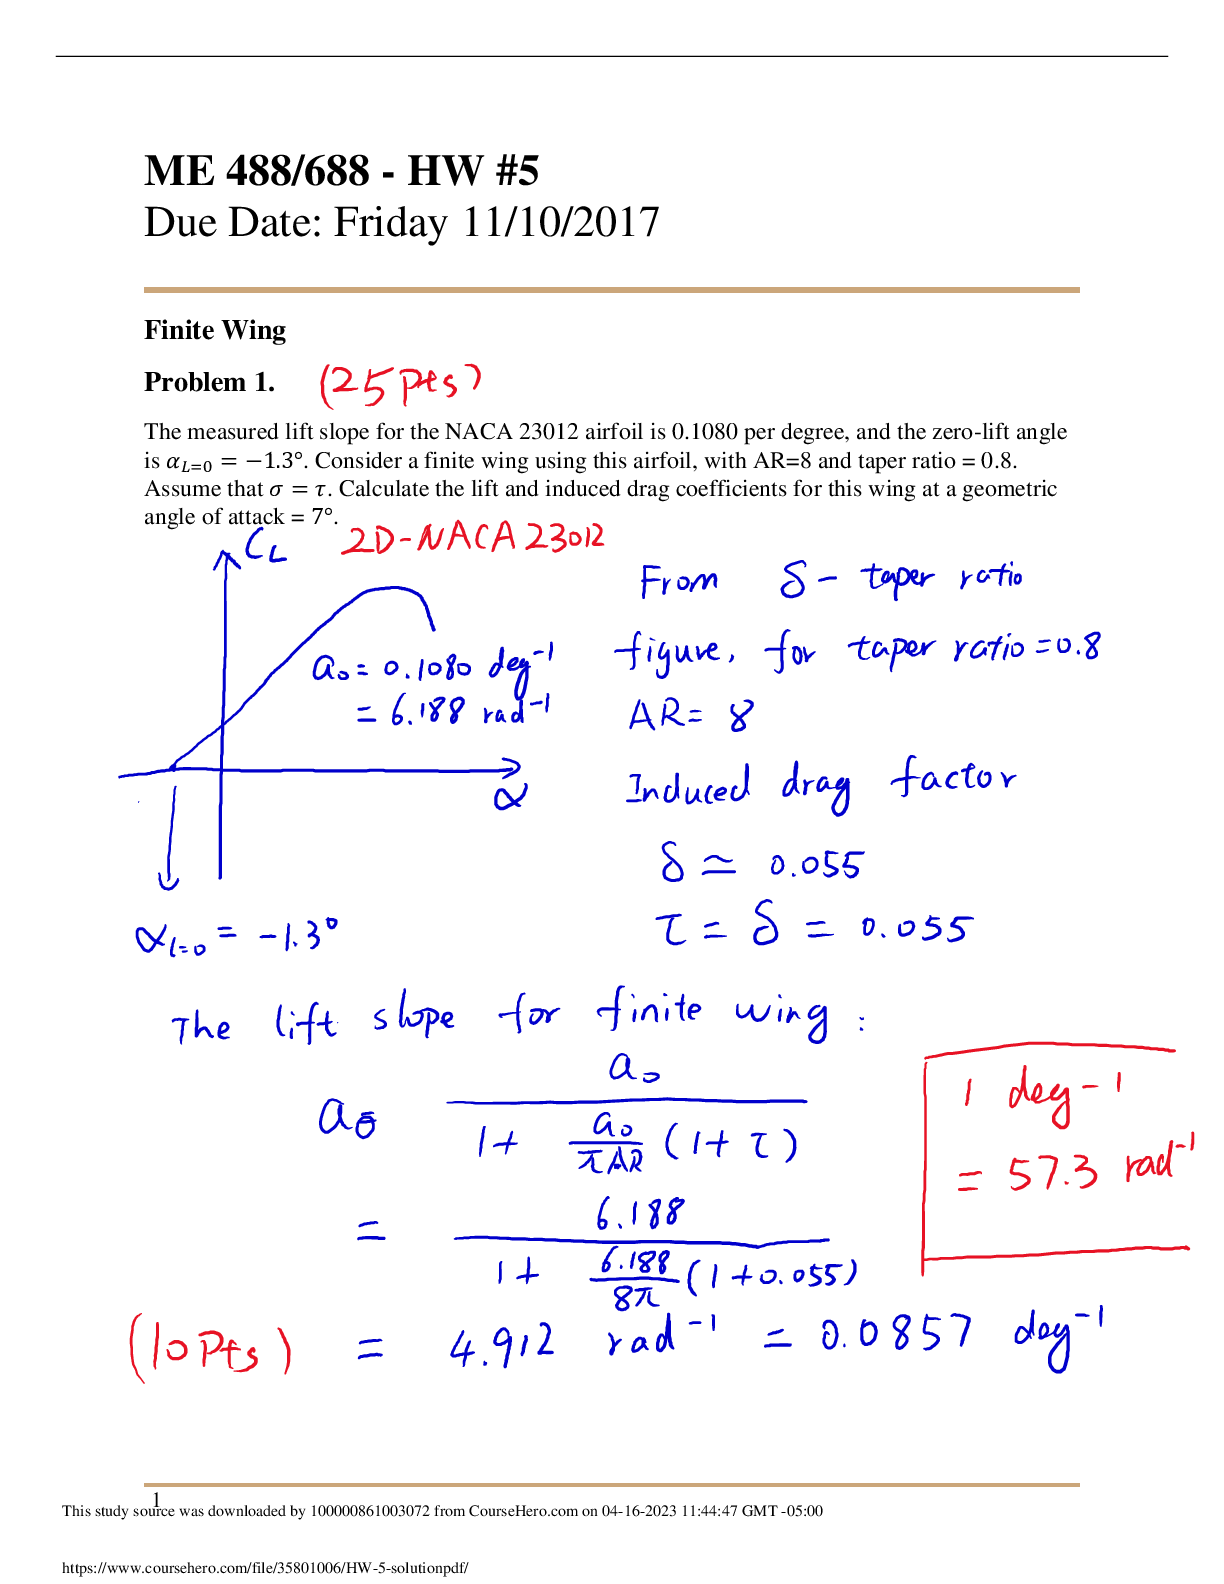 ME 488/688 - HW #5
Due Date: Friday 11/10/2017
Finite Wing
Problem 1. (25 pts)
The measured lift slope for the NACA 23012 airfoil is 0.1080 per degree, and the zero-lift angle
is α_{L=0} = −1.3°. Consider a finite wing using this airfoil, with AR=8 and taper ratio = 0.8.
Assume that σ = τ. Calculate the lift and induced drag coefficients for this wing at a geometric
angle of attack = 7°.
C_L
2D-NACA 23012
a₀ = 0.1080 deg⁻¹
= 6.188 rad⁻¹
α
α_{l=0} = -1.3°
From δ - taper ratio
figure, for taper ratio = 0.8
AR = 8
Induced drag factor
δ ≃ 0.055
τ = δ = 0.055
The lift slope for finite wing :
a = a₀ / (1 + a₀/(πAR) (1 + τ))
= 6.188 / (1 + 6.188/(8π) (1 + 0.055))
(10 Pts) = 4.912 rad⁻¹ = 0.0857 deg⁻¹
1 deg⁻¹
= 57.3 rad⁻¹
1
This study source was downloaded by 100000861003072 from CourseHero.com on 04-16-2023 11:44:47 GMT -05:00
https://www.coursehero.com/file/35801006/HW-5-solutionpdf/